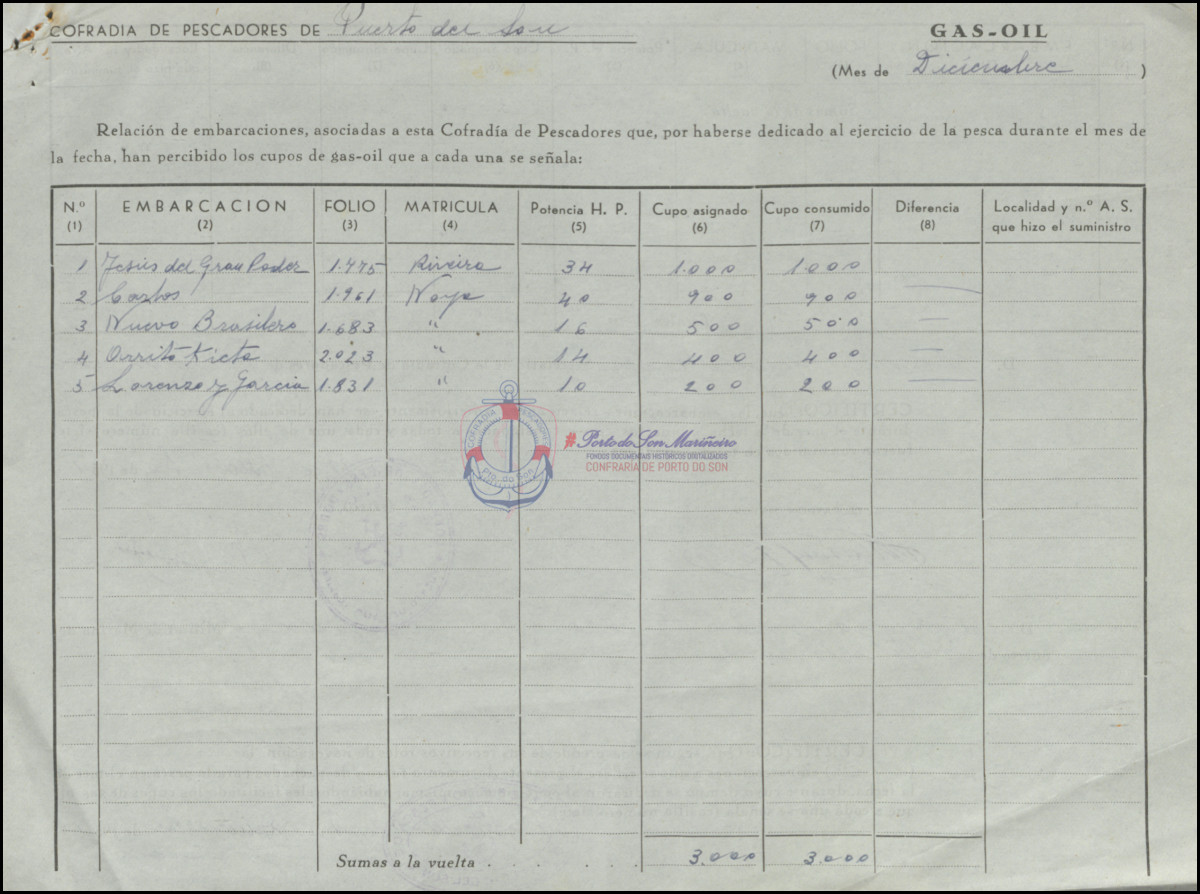 COFRADIA DE PESCADORES DE Puerto del Son
GAS-OIL
(Mes de Diciembre )
Relación de embarcaciones, asociadas a esta Cofradía de Pescadores que, por haberse dedicado al ejercicio de la pesca durante el mes de
la fecha, han percibido los cupos de gas-oil que a cada una se señala:
N.º EMBARCACION FOLIO MATRICULA Potencia H. P. Cupo asignado Cupo consumido Diferencia Localidad y n.º A. S.
(1) (2) (3) (4) (5) (6) (7) (8) que hizo el suministro
1 Jesús del Gran Poder 1.475 Riveira 34 1.000 1.000
2 Carlos 1.961 Noya 40 900 900 —
3 Nuevo Brasilero 1.683 " 16 500 500 —
4 2.023 " 14 400 400 —
5 Lorenzo y Garcia 1.831 " 10 200 200 —
COFRADIA PESCADORES
Pto. do Son
#Porto do Son Mariñeiro
FONDOS DOCUMENTAIS HISTÓRICOS DIXITALIZADOS
CONFRARÍA DE PORTO DO SON
Sumas a la vuelta . . . . . . 3.000 3.000